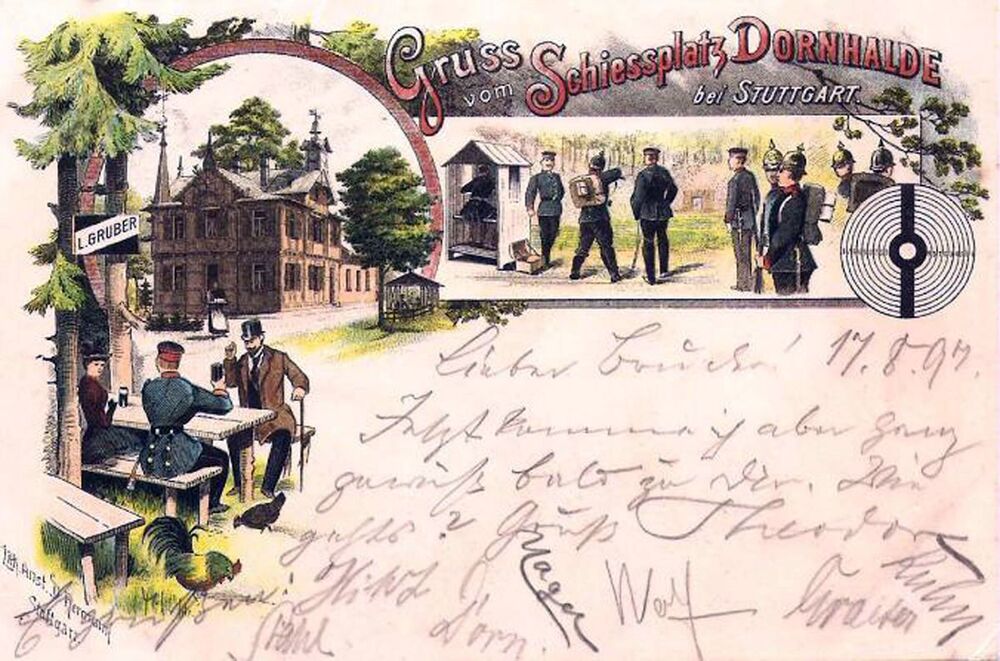 Gruss
vom Schiessplatz DORNHALDE
bei STUTTGART.
L. GRUBER
Lieber Bruder! 17.8.97.
Jetzt komme ich aber ganz
gewiß bald zu Dir. Wie
gehts? Gruß Theodor
Mager Wolf
Stähl Dorn.
Lith. Anst.
Stuttgart.